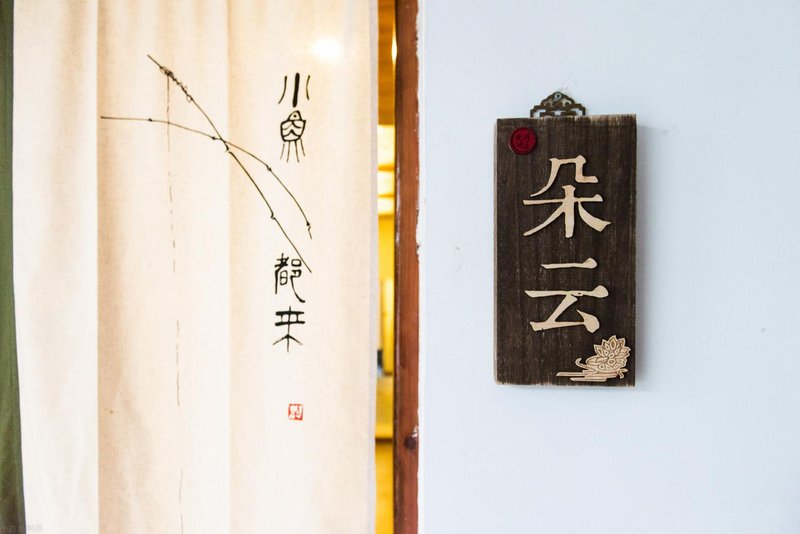 小魚
都来
朵云